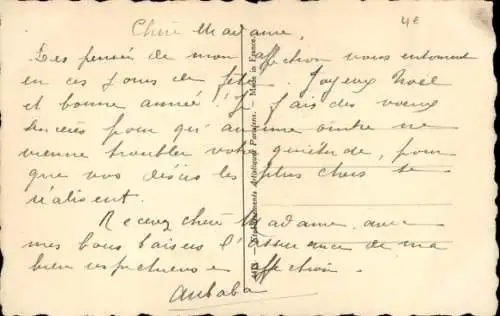 4€
Chère Madame,
Les pensées de mon affection vous entourent
en ces jours de fête. Joyeux Noël
et bonne année!! Je fais des voeux
sincères pour qu'aucune ombre ne
vienne troubler votre quiétude, pour
que vos désirs les plus chers se
réalisent.
Recevez chère Madame, avec
mes bons baisers l'assurance de ma
bien respectueuse affection.
Établissements Artistiques Parisiens. — Made in France.